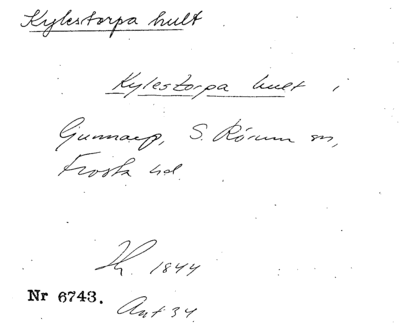 Kylestorpa hult
Kylestorpa hult i
Gunnarp, S. Rörum sn,
Frosta hd
Lh. 1844
Nr 6743.
Avt 34